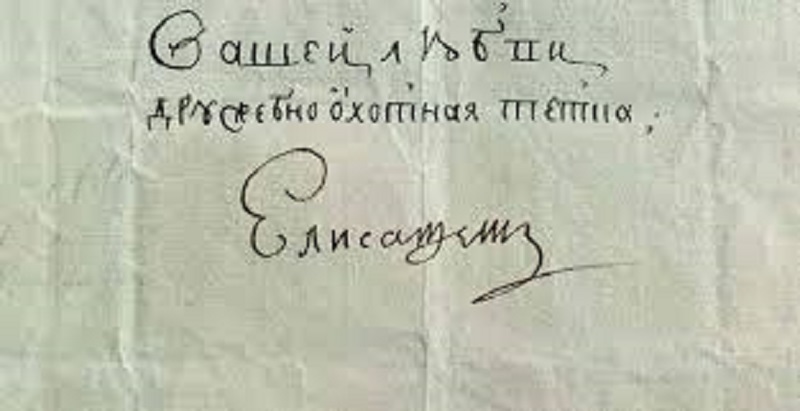 Вашей любви
дружебноохотная тетка,
Елисаветъ